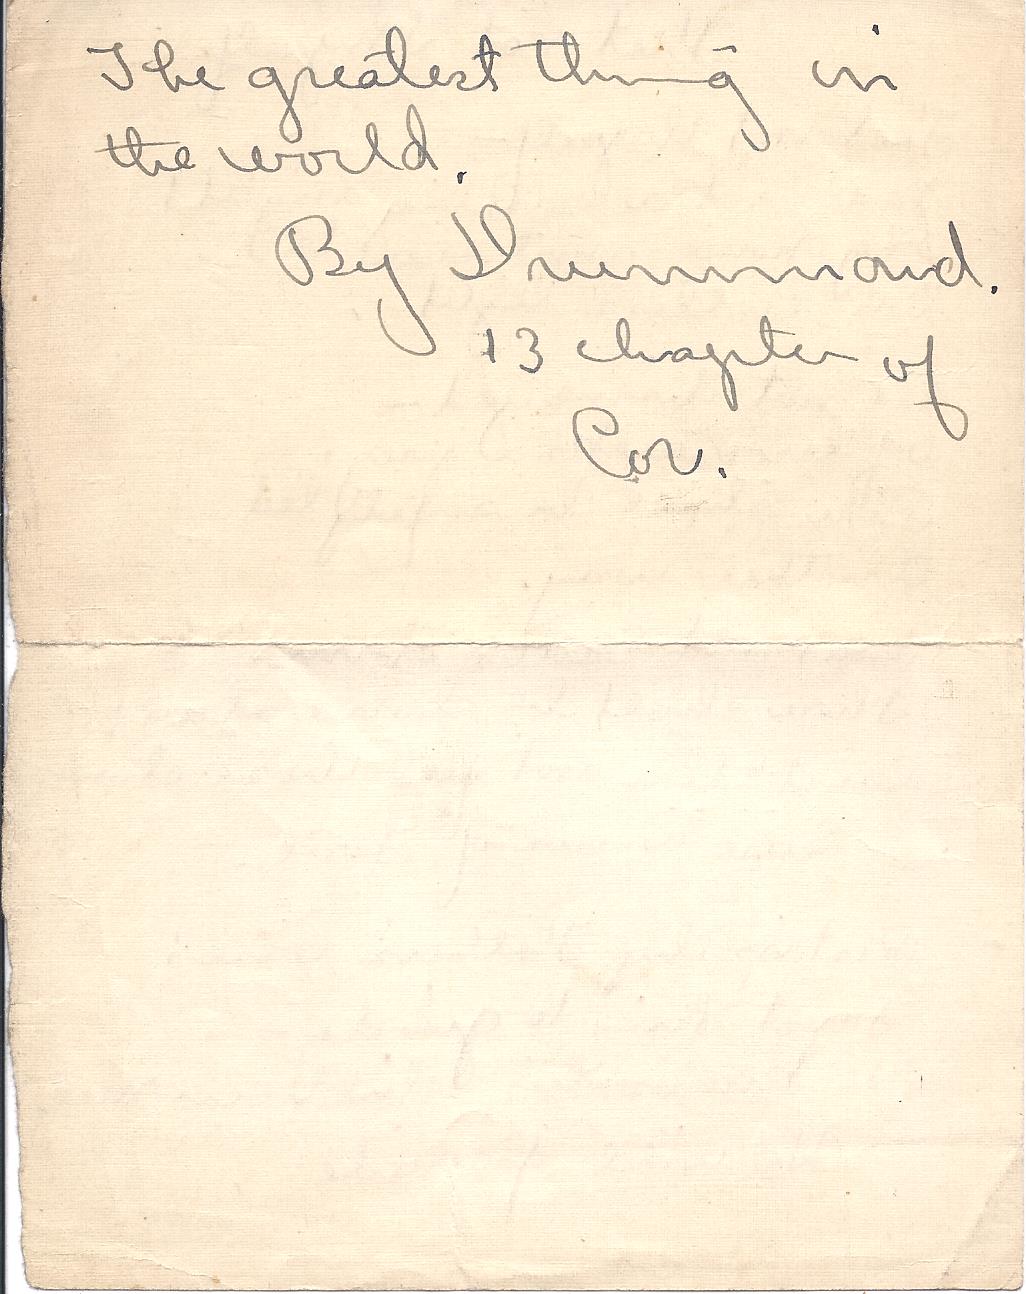 The greatest thing in
the world.
By Drummond.
13 chapter of
Cor.